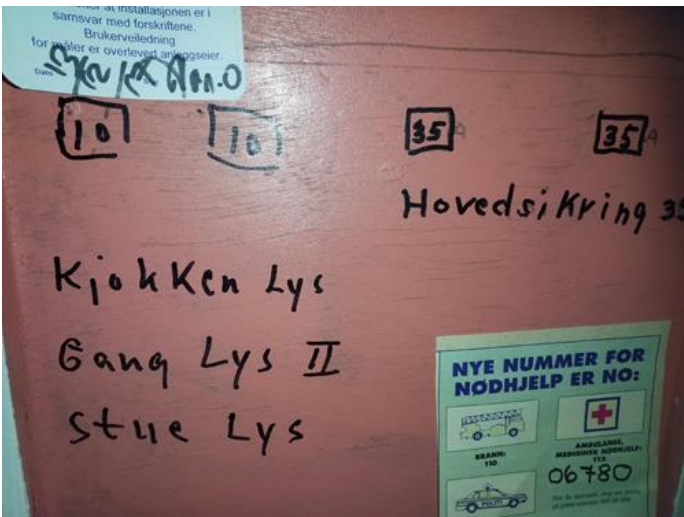 at installasjonen er i
samsvar med forskriftene.
Brukerveiledning
for måler er overlevert anleggseier.
Dato
10 10 35A 35A
Hovedsikring 35
Kjøkken Lys
Gang Lys II
Stue Lys
NYE NUMMER FOR
NØDHJELP ER NO:
BRANN:
110
AMBULANSE,
MEDISINSK NØDHJELP:
113
06780
POLITI